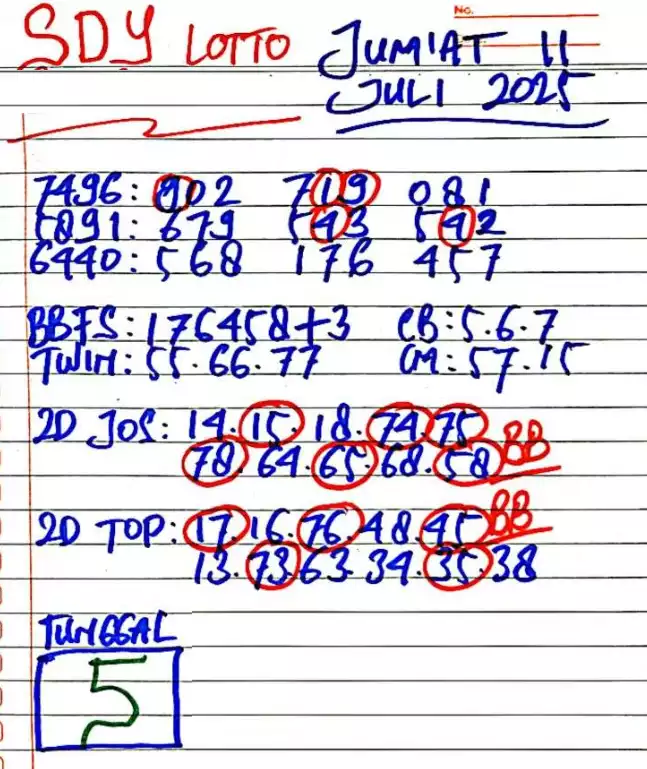 No.
SDY LOTTO JUM'AT 11
JULI 2025
7496: 902 719 081
5891: 679 543 542
6440: 568 176 457
BBFS: 176458+3 CB: 5.6.7
TWIN: 55.66.77 CM: 57.15
2D JOS: 14.15.18.74.75
78.64.65.68.58 BB
2D TOP: 17.16.76.48.45 BB
13.73.63.34.35.38
TUNGGAL
5